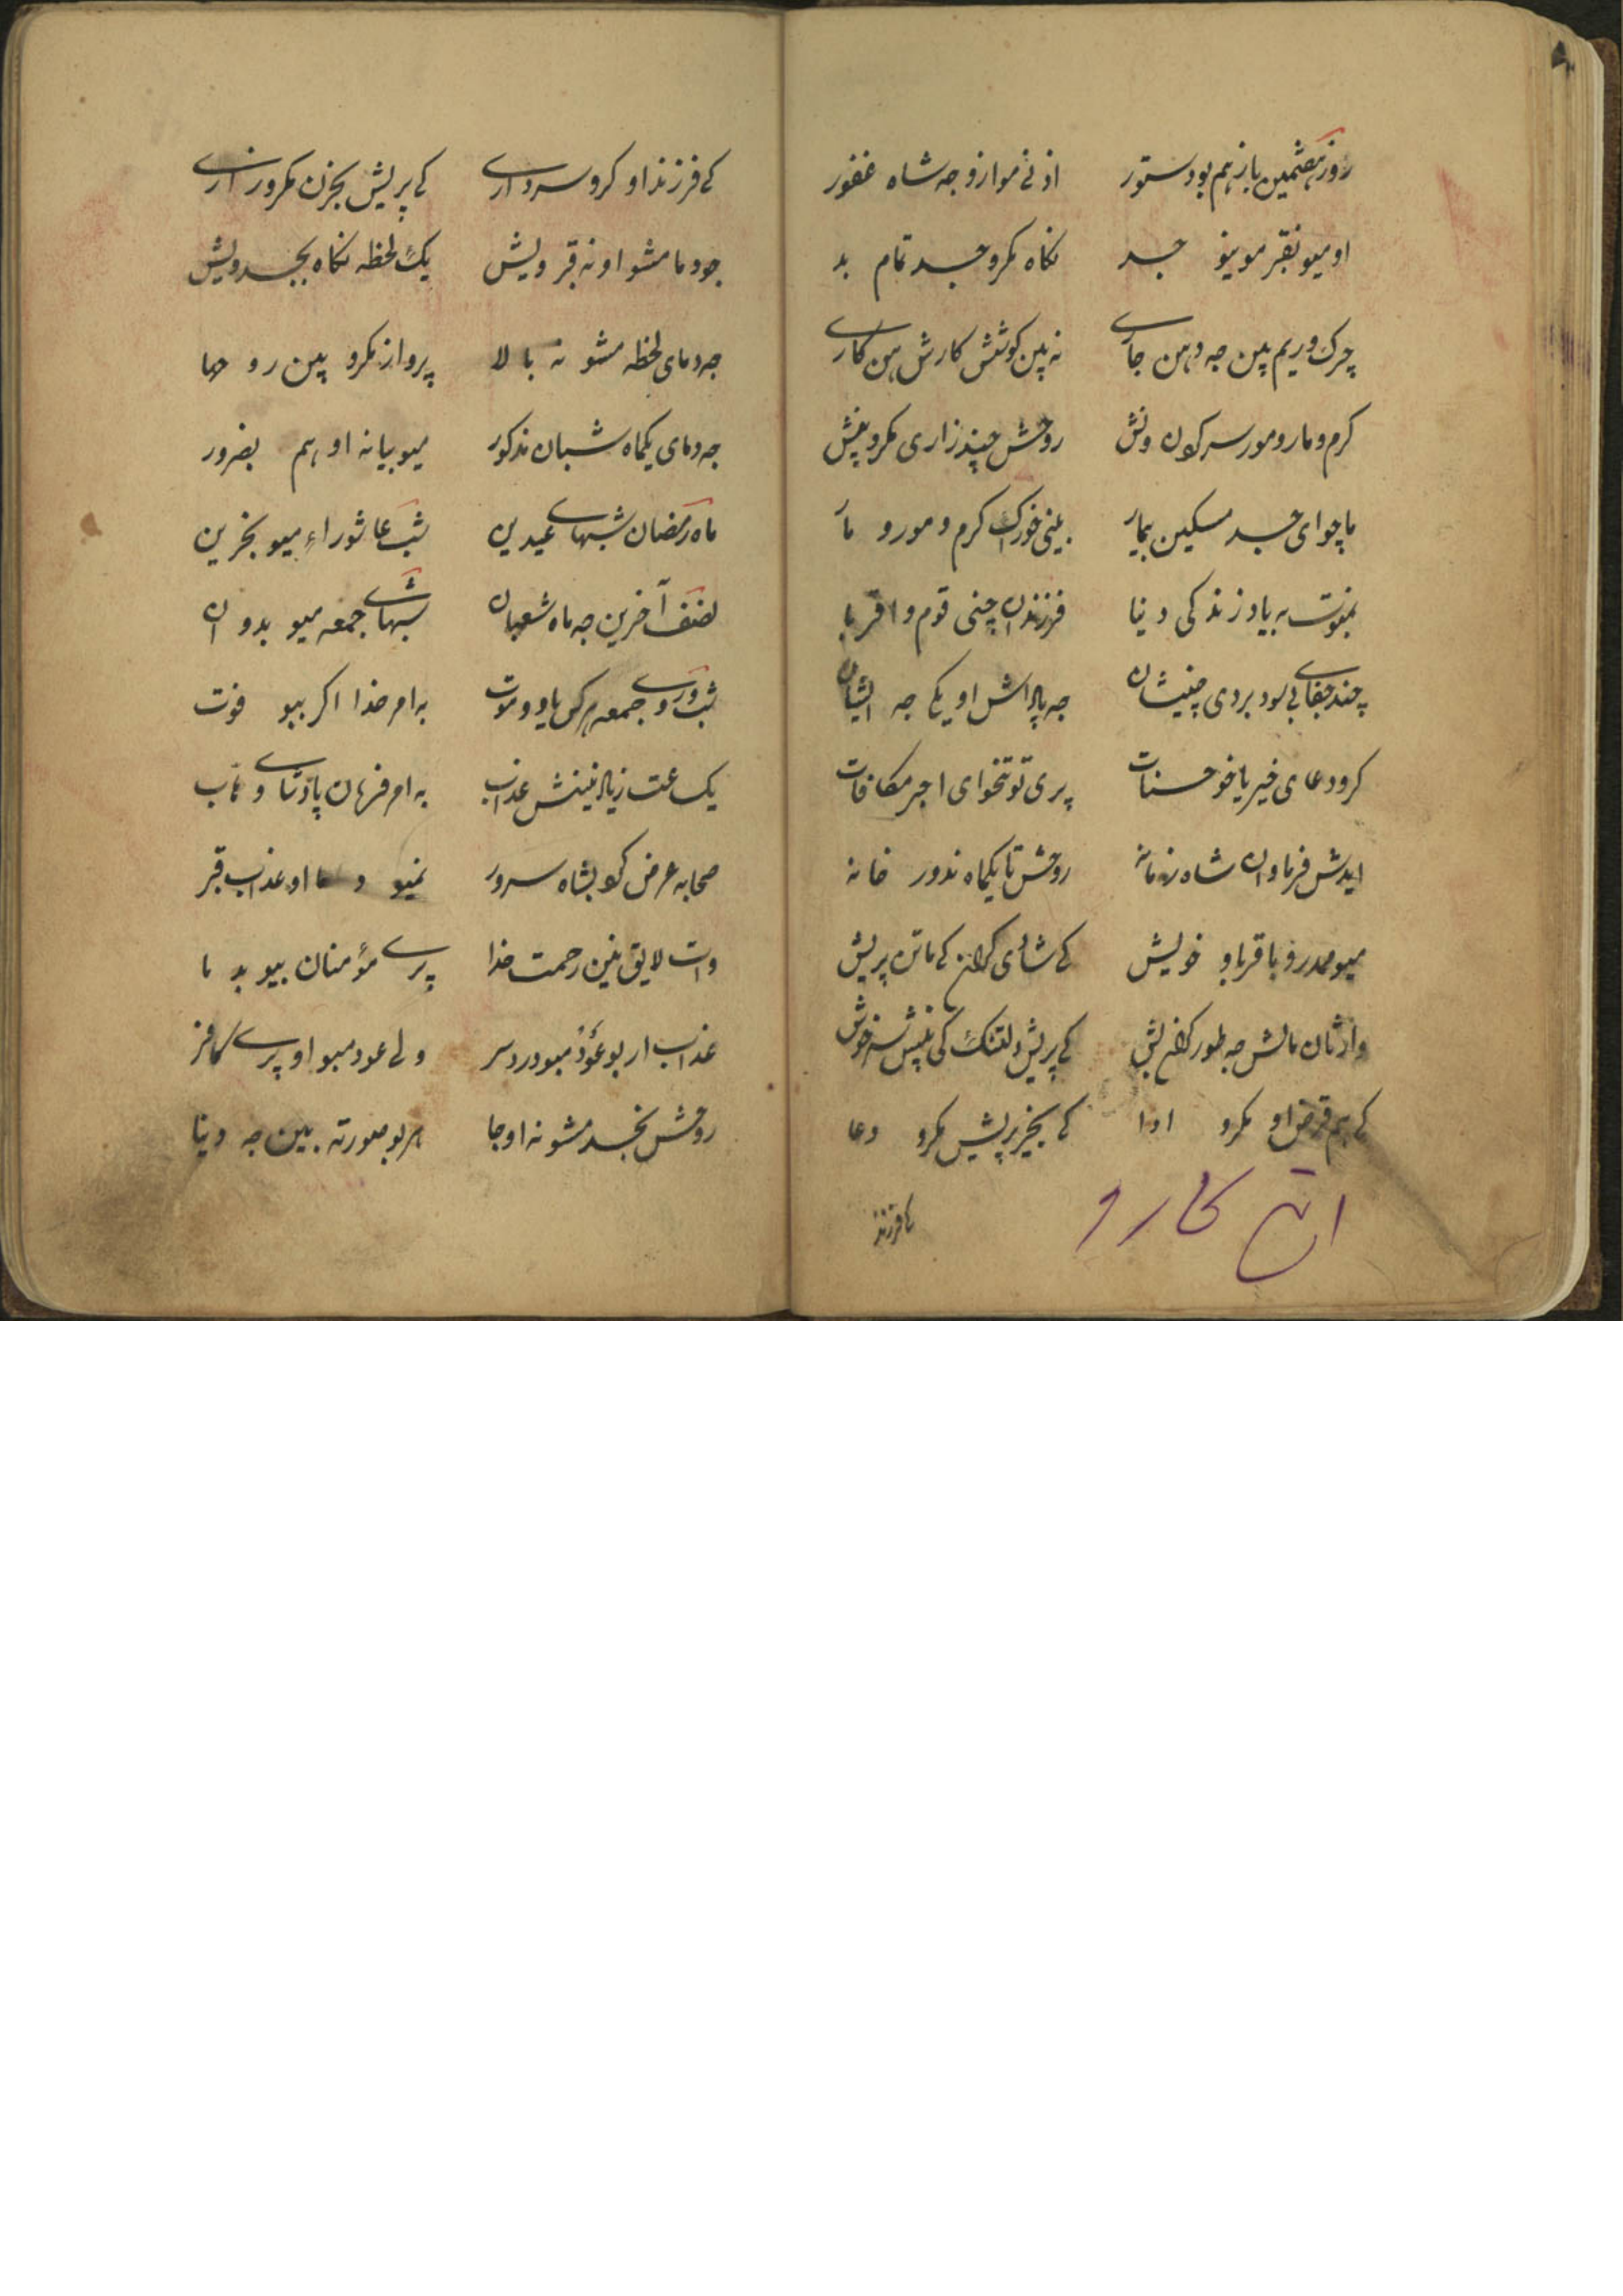 روز هشتمین باز هم بو دستور اذنی موازو جه شاه غفور
او میو نقبر موینو جسد نگاه مکرو جسد تمام بد
چرک و ریم بین جه دهن جاری نه بین کوشش کارش من کاری
کرم و مار و مور سر کردن ونش روحش چند زاری مکرو پنش
ماچو ای جسد مسکین بیمار بینی خوراک کرم و مور و مار
به یاد زندگی دنیا فرزندان چنی قوم و اقربا
چند جفای بی سود بردی چنیشان جه پاداش او یکی جه ایشان
کرو دعای خیر یا خو حسنات پری تو تنخوای اجر مکافات
ایدش فرماوان شاه زمانه روحش تا یکماه ندور خانه
میو مدرو با قربا و خویش کی شادی کران کی ماتن پریش
وارثان مالش جه طور کران بش کی پریش دلتنگ کی پنش سرخوش
کی هم قرض او مکرو ادا کی بخیر پریش مکرو دعا
کافرزند
کی فرزند او کرو سرداری کی پریش بحزن مکرو زاری
جودما مشو او نه قبر ویش یک لحظه نگاه بجسد ویش
جه دمای لحظه مشو نه بالا پرواز مکرو بین رو هما
جه دمای یکماه شبان مذکور میو بیانه او هم بضرور
ماه رمضان شبهای عیدین شب عاشوراء میو بخزین
نصف آخرین جه ماه شعبان شبهای جمعه میو بدوان
شب و روی جمعه هر کس یاوو موت به امر خدا اگر ببو فوت
یک ساعت زیاد نینش عذاب به امر فرمان پادشای وهاب
صحابه عرض کرد بشاه سرور نمیو دما او عذاب قبر
وات لایق نین رحمت خدا پری مؤمنان ببو بد ما
عذاب ار بو عود مبو دردسر ولی عود مبو او پری کافر
روحش بجسد مشو نه اوجا هر بو صورته بین جه دنیا